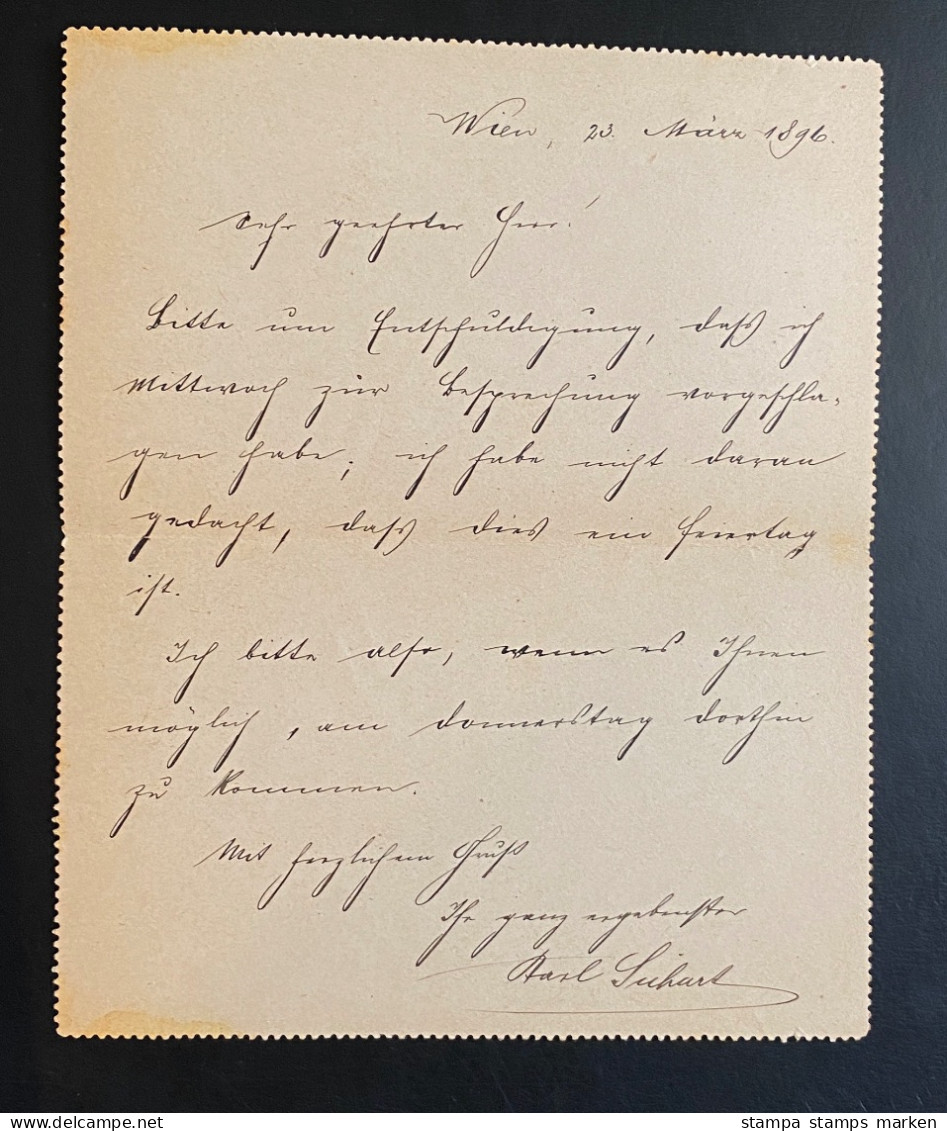 Wien, 23. März 1896.
Sehr geehrter Herr!
Bitte um Entschuldigung, daß ich
Mittwoch zur Besprechung vorgeschla-
gen habe; ich habe nicht daran
gedacht, dass dies ein Feiertag
ist.
Ich bitte also, wenn es Ihnen
möglich, am Donnerstag dorthin
zu kommen.
Mit herzlichem Gruß
Ihr ganz ergebenster
Karl
stampa stamps marken